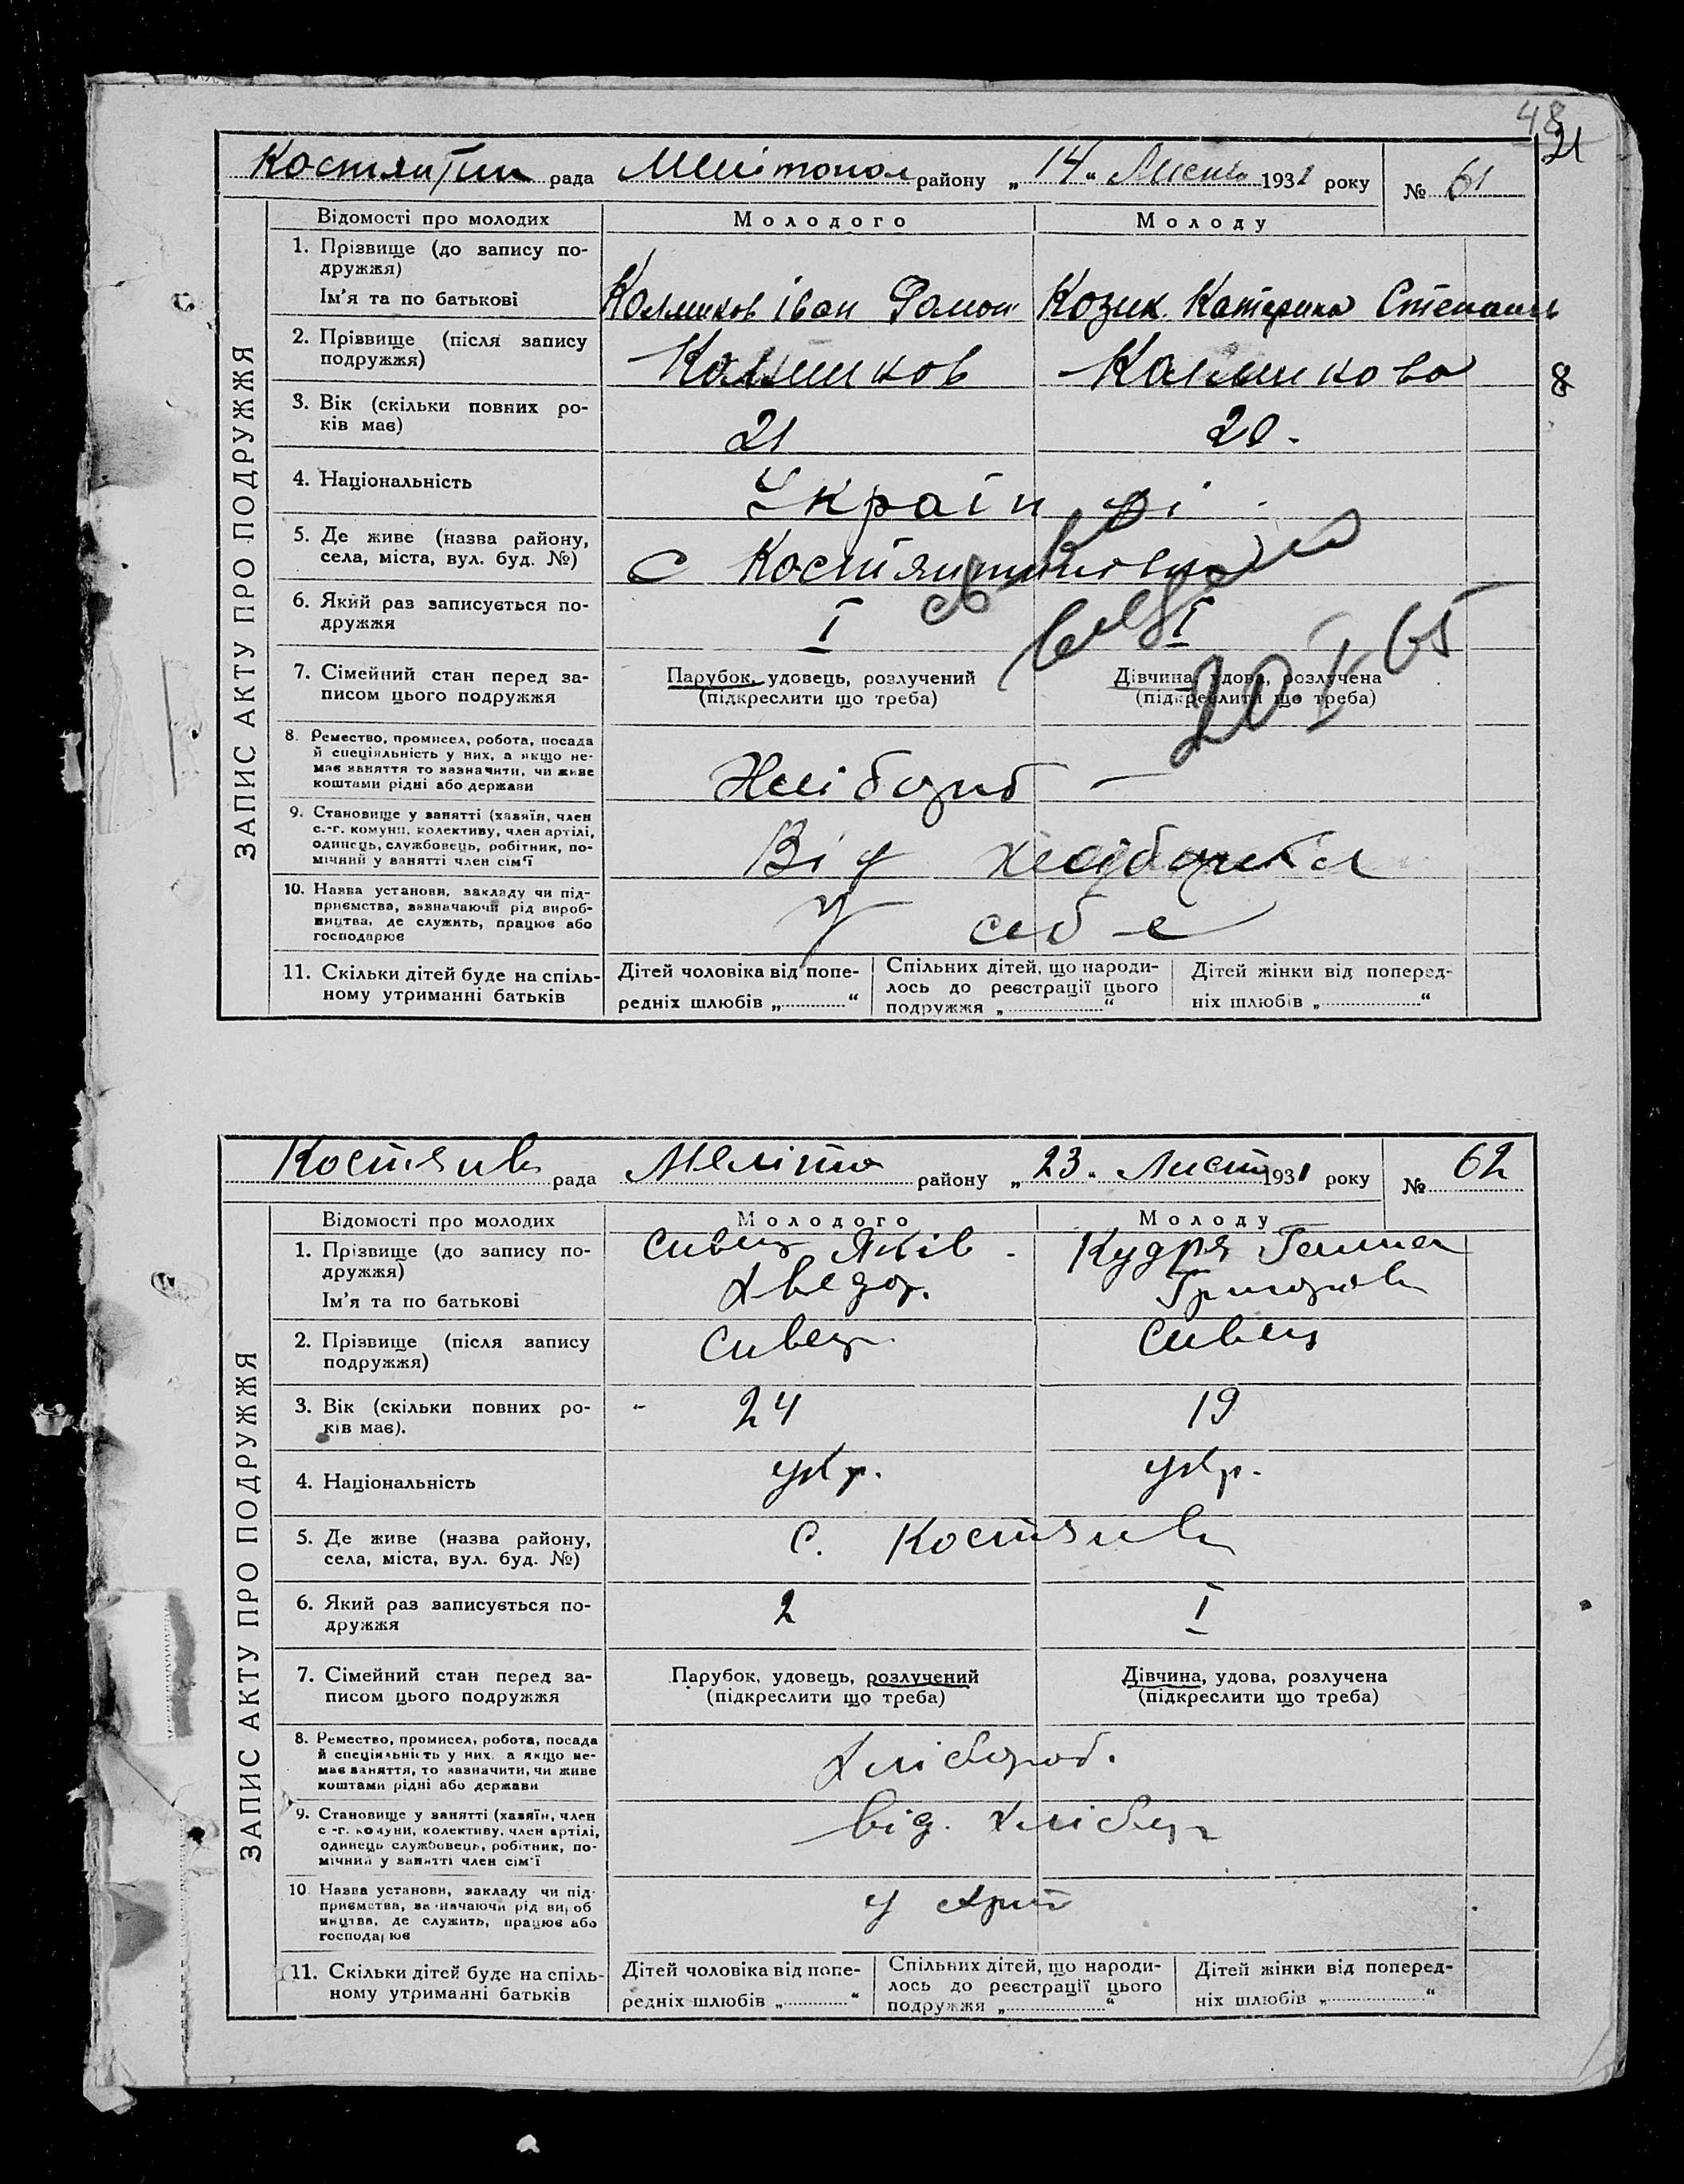 48
21
Костянтин рада Мелітопол району „ 14 " Листо 1931 року № 61
ЗАПИС АКТУ ПРО ПОДРУЖЖЯ
Відомості про молодих Молодого Молоду
1. Прізвище (до запису по-
дружжя)
Ім'я та по батькові Калмиков Іван Козик Катерина Степанів
2. Прізвище (після запису
подружжя) Калмиков Калмикова
8
3. Вік (скільки повних ро-
ків має) 21 20.
4. Національність Українці
5. Де живе (назва району,
села, міста, вул. буд. №) с Костянтинівка
6. Який раз записується по-
дружжя I I
св-во
видано
20 I 65
7. Сімейний стан перед за-
писом цього подружжя
Парубок, удовець, розлучений
(підкреслити що треба)
Дівчина, удова, розлучена
(підкреслити що треба)
8. Ремество, промисел, робота, посада
й спеціяльність у них, а якщо не-
має заняття то зазначити, чи живе
коштами рідні або держави
Хлібороб —
9. Становище у занятті (хазяїн, член
с.-г. комуни, колективу, член артілі,
одинець, службовець, робітник, по-
мічний у занятті член сім'ї
Від хліборобст
10. Назва установи, закладу чи під-
приємства, зазначаючи рід вироб-
ництва, де служить, працює або
господарює
У себе
11. Скільки дітей буде на спіль-
ному утриманні батьків
Дітей чоловіка від попе-
редніх шлюбів „ "
Спільних дітей, що народи-
лось до реєстрації цього
подружжя „ "
Дітей жінки від поперед-
ніх шлюбів „ "
Костянів рада Меліто району „ 23 " Лист 1931 року № 62
ЗАПИС АКТУ ПРО ПОДРУЖЖЯ
Відомості про молодих Молодого Молоду
1. Прізвище (до запису по-
дружжя)
Ім'я та по батькові
Сивец Яків -
Хведор.
Кудря Ганна
Григорів
2. Прізвище (після запису
подружжя) Сивец Сивец
3. Вік (скільки повних ро-
ків має). - 24 19
4. Національність укр. укр.
5. Де живе (назва району,
села, міста, вул. буд. №) с. Костянів
6. Який раз записується по-
дружжя 2 I
7. Сімейний стан перед за-
писом цього подружжя
Парубок, удовець, розлучений
(підкреслити що треба)
Дівчина, удова, розлучена
(підкреслити що треба)
8. Ремество, промисел, робота, посада
й спеціяльність у них, а якщо не-
має заняття, то зазначити, чи живе
коштами рідні або держави
Хлібороб.
9. Становище у занятті (хазяїн, член
с.-г. комуни, колективу, член артілі,
одинець службовець, робітник, по-
мічний у занятті член сім'ї
від. хлібор
10. Назва установи, закладу чи під-
приємства, зазначаючи рід вироб
ництва, де служить, працює або
господарює
у Арті
11. Скільки дітей буде на спіль-
ному утриманні батьків
Дітей чоловіка від попе-
редніх шлюбів „ "
Спільних дітей, що народи-
лось до реєстрації цього
подружжя „ "
Дітей жінки від поперед-
ніх шлюбів „ "